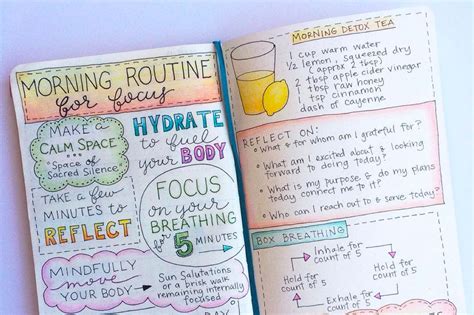 MORNING ROUTINE
for focus
MAKE A
CALM SPACE
Space of
Sacred Silence
HYDRATE
to fuel
your BODY
TAKE A FEW
MINUTES TO
REFLECT
FOCUS
on your
BREATHING
for 5 MINUTES
MINDFULLY
move
YOUR BODY
Sun Salutations
or a brisk walk
remaining internally
focused
MORNING DETOX TEA
1 cup warm water
1/2 lemon, squeezed dry
(approx 2 tbsp)
2 tbsp apple cider vinegar
1 tbsp raw honey
1 tsp cinnamon
dash of cayenne
REFLECT ON:
• What & for whom am I grateful for?
• What am I excited about & looking
forward to doing today?
• What is my purpose & do my plans
today connect me to it?
• Who can I reach out to & serve today?
BOX BREATHING
Inhale for
count of 5
Hold for
count of 5
Hold for
count of 5
Exhale for
count of 5